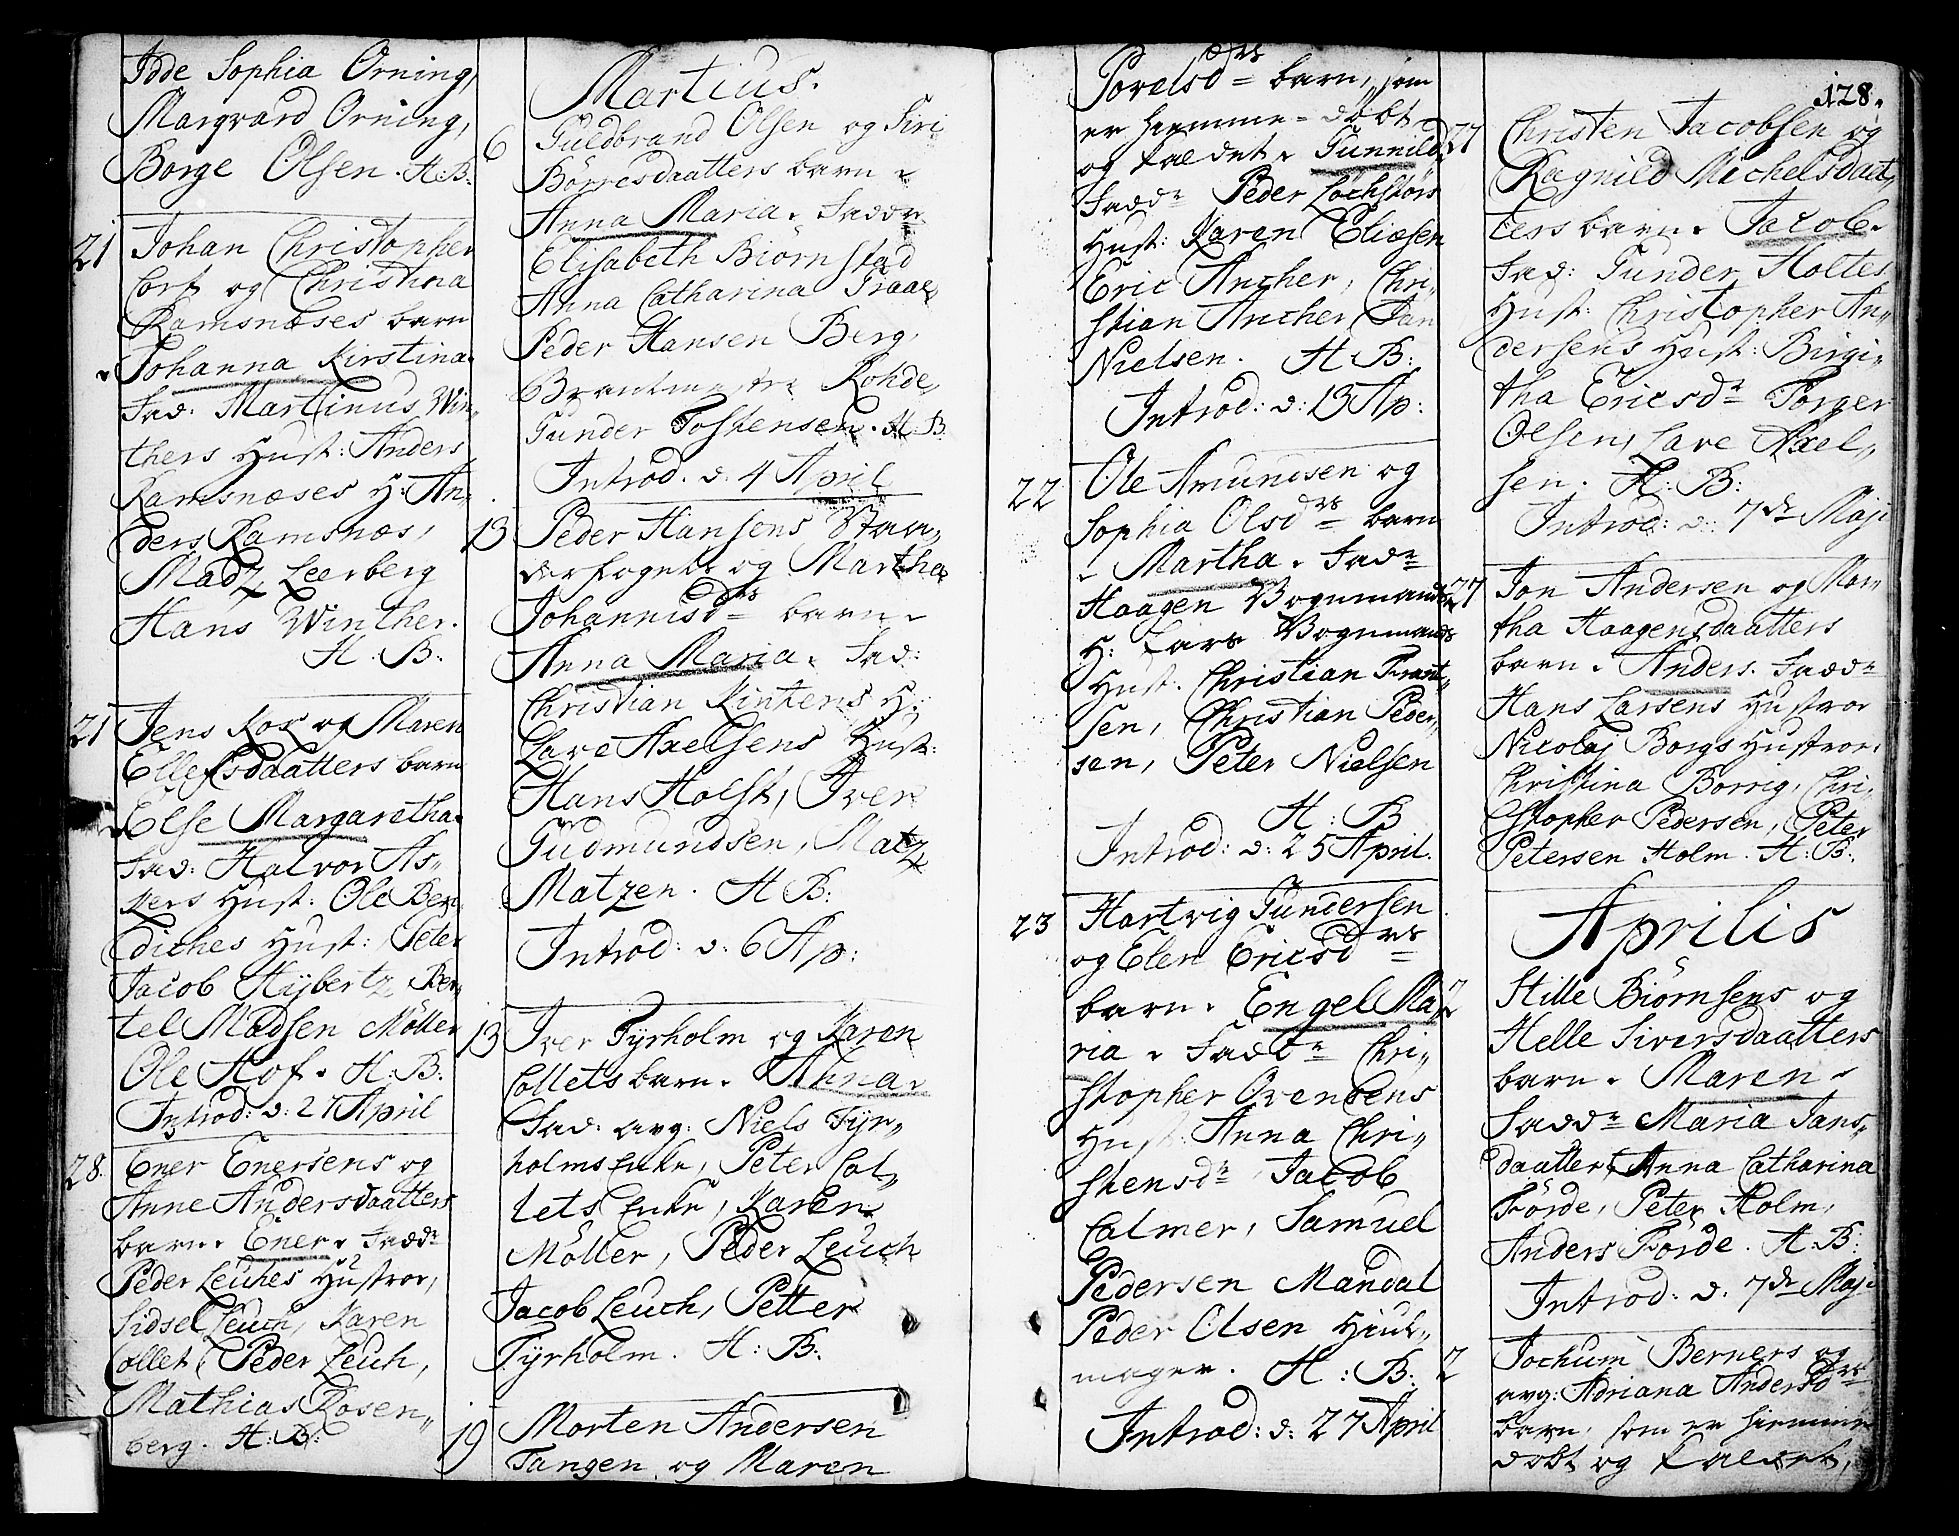 Idde Sophia Orning,
Marqvard Orning,
Borge Olsen. H: B:
21 Johan Christopher
Corf og Christina
Ramsnæses barn
Johanna Kirstina.
Fad: Martinus Win„
thers Hust: Anders
Ramsnæses H: An„
ders Ramsnæs,
Madz Leerberg
Hans Winther.
H. B:
21 Jens Kox og Maren
Ellefsdaatters barn
Else Margaretha.
Fad: Halvor As„
kers Hust: Ole Ben„
diches Hust: Peter
Jacob Hybertz, Ber„
tel Madsen Möller
Ole Hof. H: B:
Introd: d: 27 April
28. Ener Enersens og
Anne Andersdaatters
barn. Ener. Fadd
Peder Leuches Hustror,
Sidsel Leuch, Karen
Collet, Peder Leuch,
Mathias Rosen„
berg. H: B:
Martius.
6 Guldbrand Olsen og Siri
Börresdaatters barn
Anna Maria. Fadd
Elisabeth Biörnstad
Anna Catharina
Peder Hansen Berg,
Rohde,
Gunder Tostensen. H: B
Introd. d. 4 April
13 Peder Hansens
og Martha
Johannisdrs barn.
Anna Maria. Fad:
Christian Kintens H:
Lave Axelsens Hust:
Hans Holst, Iver
Gudmundsen, Matz
Matzen. H B:
Introd: d: 6 Ap:
13 Iver Tyrholm og Karen
Collets barn. Anna.
Fad: avg: Niels Tyr„
holms Enke, Peter Col„
lets Enke, Karen
Möller, Peder Leuch
Jacob Leuch, Petter
Tyrholm. H: B:
19 Morten Andersen
Tangen og Maren
Povelsdrs barn, som
er hiemme-döbt
og kaldet. Gunnild.
Fadd Peder Löchstörs
Hust: Karen Eliæsen
Eric Ancher, Chri„
stian Ancher, Jan
Nielsen. H B:
Introd: d: 13 Ap:
22 Ole Amundsen og
Sophia Olsdrs barn
Martha. Fad
Haagen Vognmands
H: Lars Vognmands
Hust. Christian Frant„
sen, Christian Peder„
sen, Peter Nielsen
H: B
Introd: d: 25 April.
23 Hartvig Gundersen
og Elen Ericsdrs
barn. Engel Ma„
ria. Fadd Chri„
stopher Ovendens
Hust: Anna Chri„
stensdr Jacob
Calmer, Samuel
Pedersen Mandal
Peder Olsen Hiul„
mager. H: B:
Introd: d: 27 April
128.
27 Christen Jacobsen og
Ragnild Michelsdaat„
ters barn. Jacob.
Fad: Gunder Holtes
Hust: Christopher An„
dersens Hust: Birgi„
tha Ericsdr Torger
Olsen, Lave Axel„
sen. H. B:
Introd: d: 7de Maji
27 Jon Andersen og Mar„
tha Haagensdaatters
barn. Anders. Fadd
Hans Larsens Hustror
Nicolaj Borgs Hustror.
Christina Borrig, Chri„
stopher Pedersen, Peter
Petersen Holm. H: B:
Aprilis
2 Stille Biörnsens og
Helle Siversdaatters
barn. Maren.
Fadd Maria Jans„
daatter, Anna Catharina
Förde, Peter Holm,
Anders Förde. H. B:
Introd: d. 7de Maji
2 Jochum Berners og
avg: Adriana Andersdrs
barn, som er hiemme
döbt og kaldet,